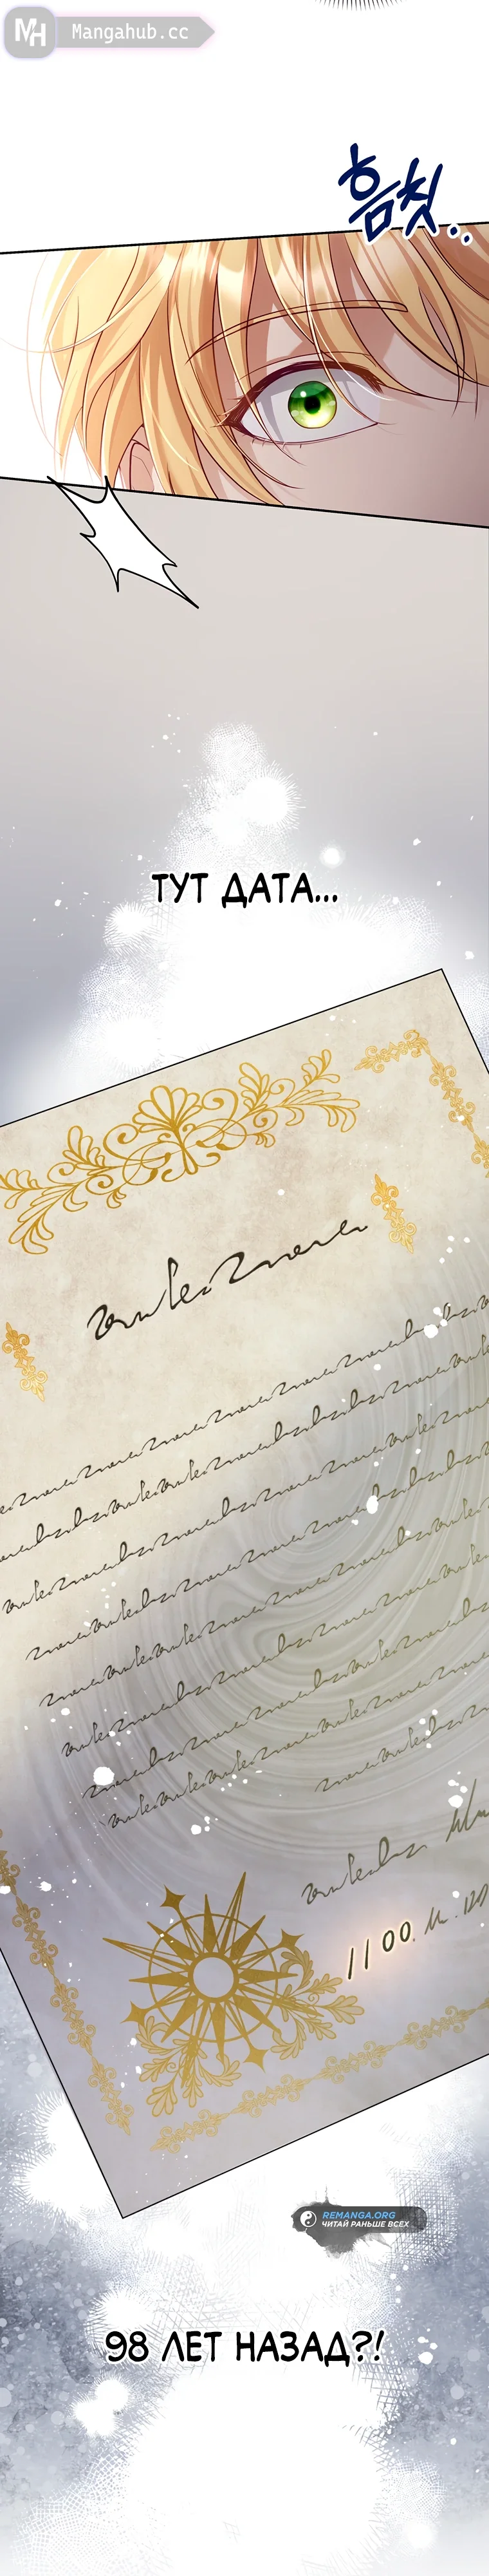 MH Mangahub.cc
흠칫..
ТУТ ДАТА...
1100.
REMANGA.ORG
ЧИТАЙ РАНЬШЕ ВСЕХ
98 ЛЕТ НАЗАД?!